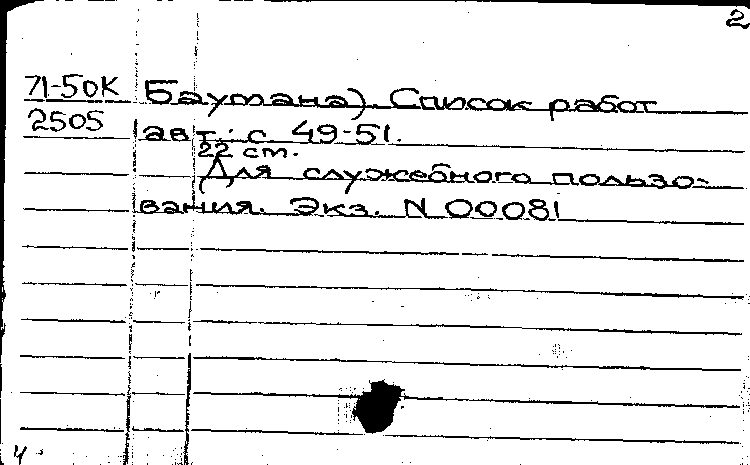 2
71-50К Баумана). Список работ
2505 авт.: с. 49-51.
22 см.
Для служебного пользо-
вания. Экз. N 00081
4